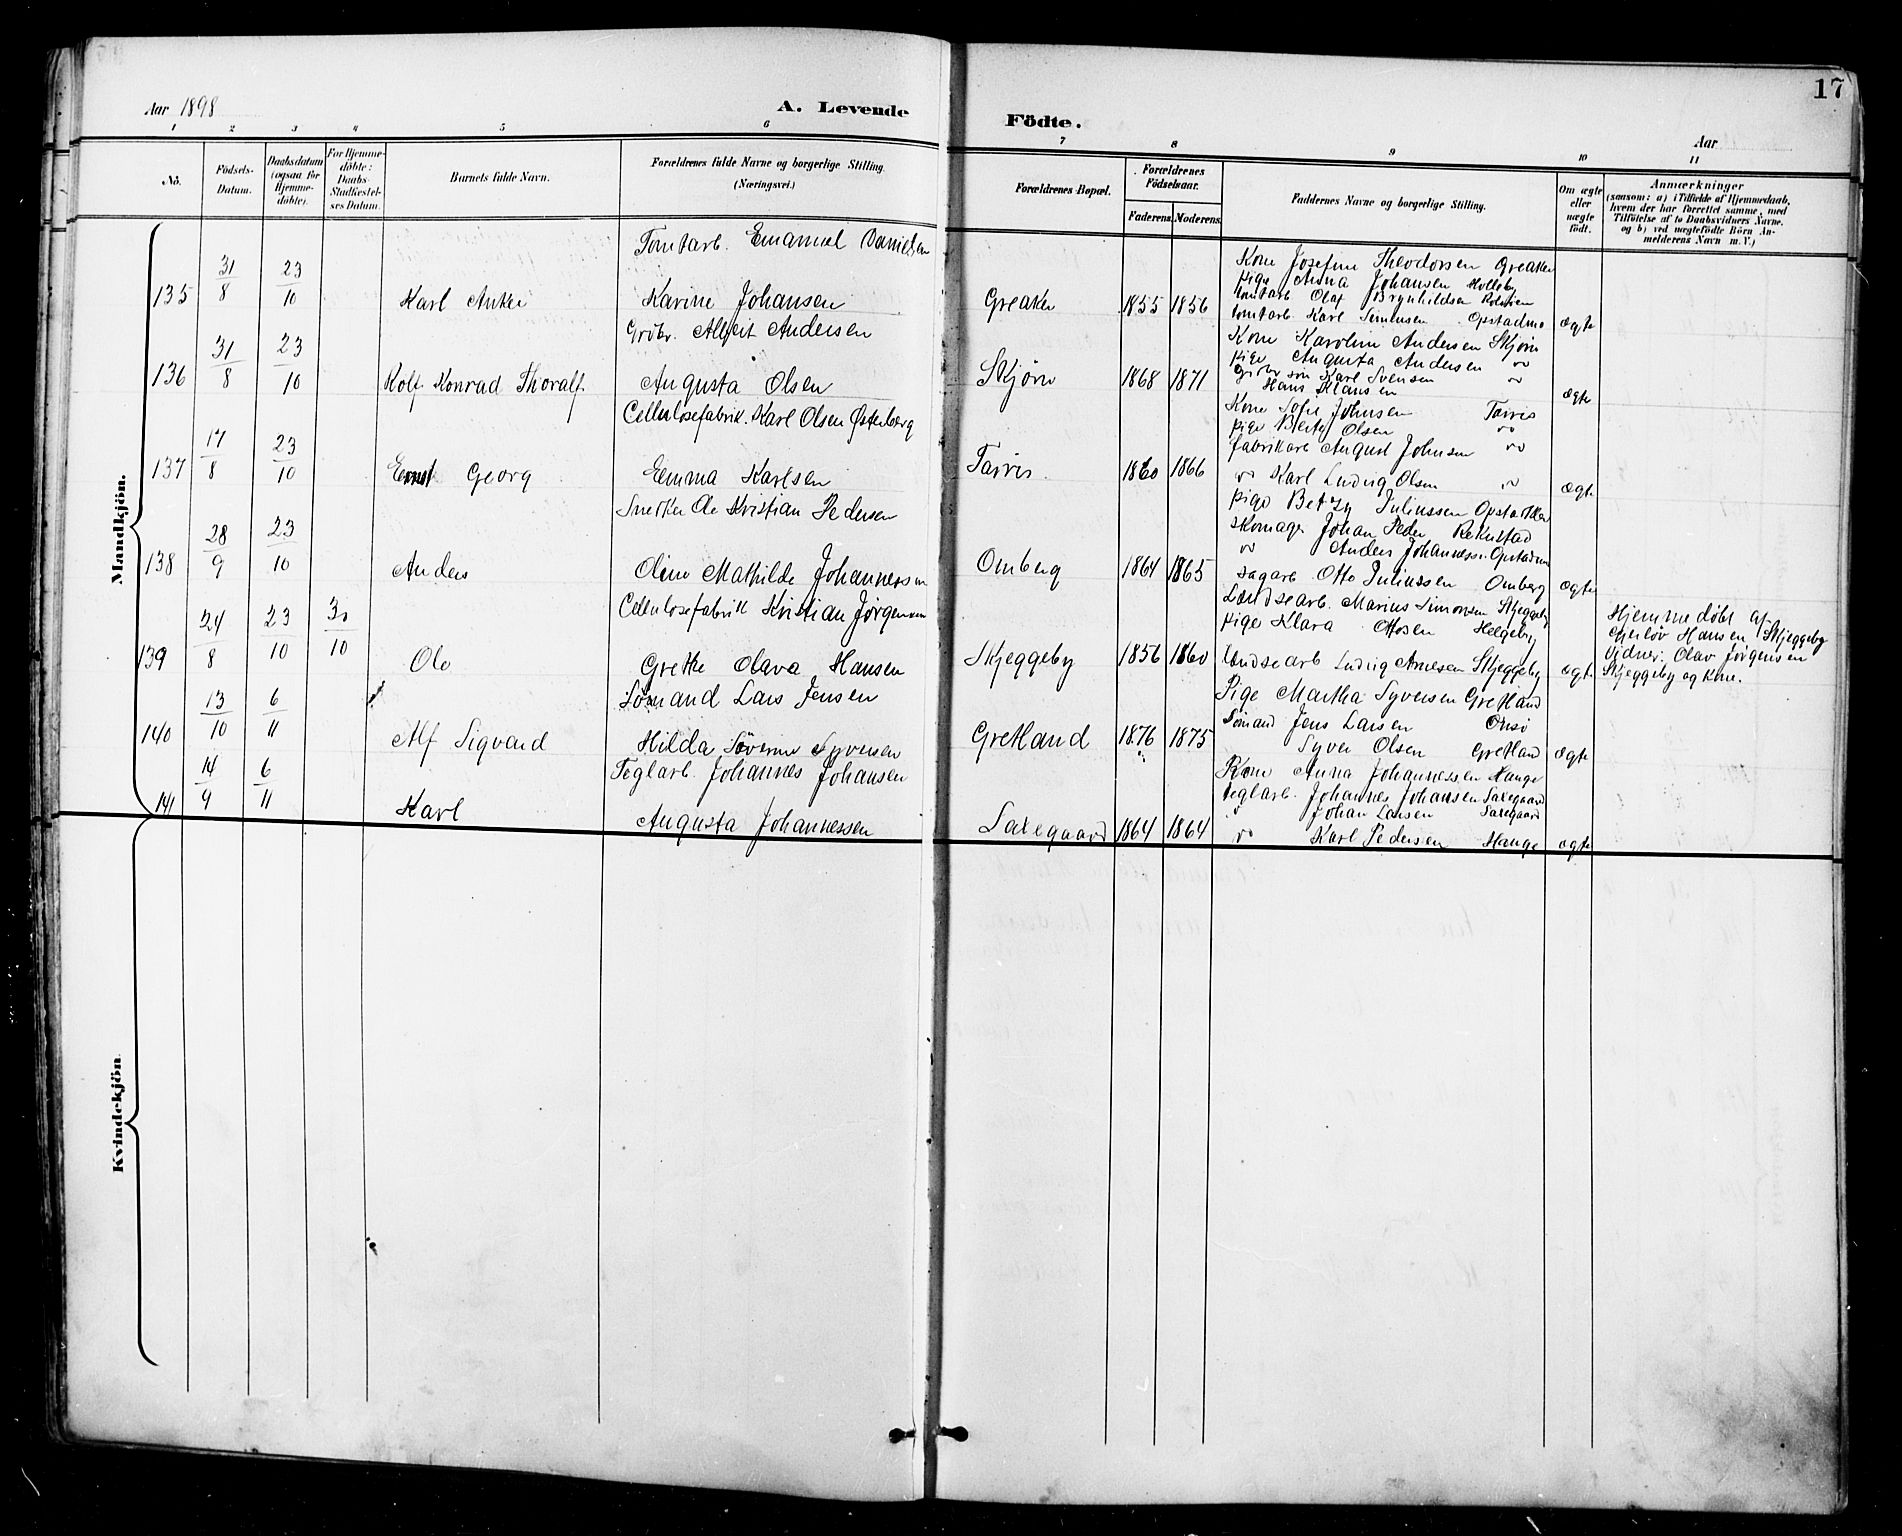 17
Aar 1898
A. Levende
Födte.
Aar
1 2 3 4 5 6 7 8 9 10 11
No.
Födsels-Datum.
Daabsdatum (ogsaa for Hjemme-döbte).
For Hjemme-döbte: Daabs-Stadfæstel-ses Datum.
Barnets fulde Navn.
Forældrenes fulde Navne og borgerlige Stilling.
(Næringsvei.)
Forældrenes Bopæl.
Forældrenes Födselsaar.
Faderens. Moderens.
Faddernes Navne og borgerlige Stilling.
Om ægte eller uægte födt.
Anmærkninger
(saasom: a) i Tilfælde af Hjemmedaab,
hvem der har forrettet samme, med
Tilföielse af to Daabsvidners Navne.
og b) ved uægtefödte Börn An-
melderens Navn m. V.)
Mandkjön.
Tomtarb. Emanuel Danielsen
135 31/8 23/10 Karl Anker Karine Johansen Greaker 1855 1856 ægte
Kone Josefine Theodorsen Greaker
pige Anna Johansen Holleby
tomtarb Olaf Brynhildsen
tomtarb. Karl Simensen Opstadmo
Grbbr. Albert Andersen
136 31/8 23/10 Rolf Konrad Thoralf Augusta Olsen Skjørn 1868 1871 ægte
Kone Karoline Andersen Skjørn
pige Augusta Andersen "
Karl Svensen "
Hans Klausen
Cellulosefabrik. Karl Olsen Østerberg
137 17/8 23/10 Ernst Georg Emma Karlsen Tarris 1860 1866 ægte
Kone Sofie Johnsen Tarris
pige Berte Olsen "
fabrikarb August Johnsen "
" Karl Ludvig Olsen "
Snerker Ole Kristian Pedersen
138 28/9 23/10 Anders Oline Mathilde Johannessen Omberg 1864 1865 ægte
pige Betzy Juliussen
skomager Johan Peder Rekustad
" Anders Johannessen
sagarb. Otto Juliussen Omberg
Cellulosefabrik Kristian Jørgensen
139 24/8 23/10 30/10 Ole Grethe Olava Hansen Skjeggeby 1856 1860 ægte
Lændsearb. Marius Simonsen Skjeggeby
pige Klara Ottosen Helgeby
Lændsearb Ludvig Arnesen Skjeggeby
Hjemmedøbt af
Hansen Skjeggeby
Vidner: Olav Jørgensen
Skjeggeby og Kone.
Sømand Lars Jensen
140 13/10 6/11 Alf Sigvard Hilda Søverine Syversen Gretland 1876 1875 ægte
Pige Martha Syversen Gretland
Sømand Jens Larsen Onsø
Syver Olsen Gretland
Teglarb. Johannes Johansen
141 14/9 6/11 Karl Augusta Johannessen Saxegaard 1864 1864 ægte
Kone Anna Johannessen Hauge
Teglarb. Johannes Johansen Saxegaard
" Johan Larsen Saxegaard
" Karl Pedersen Hauge
Kvindekjön.